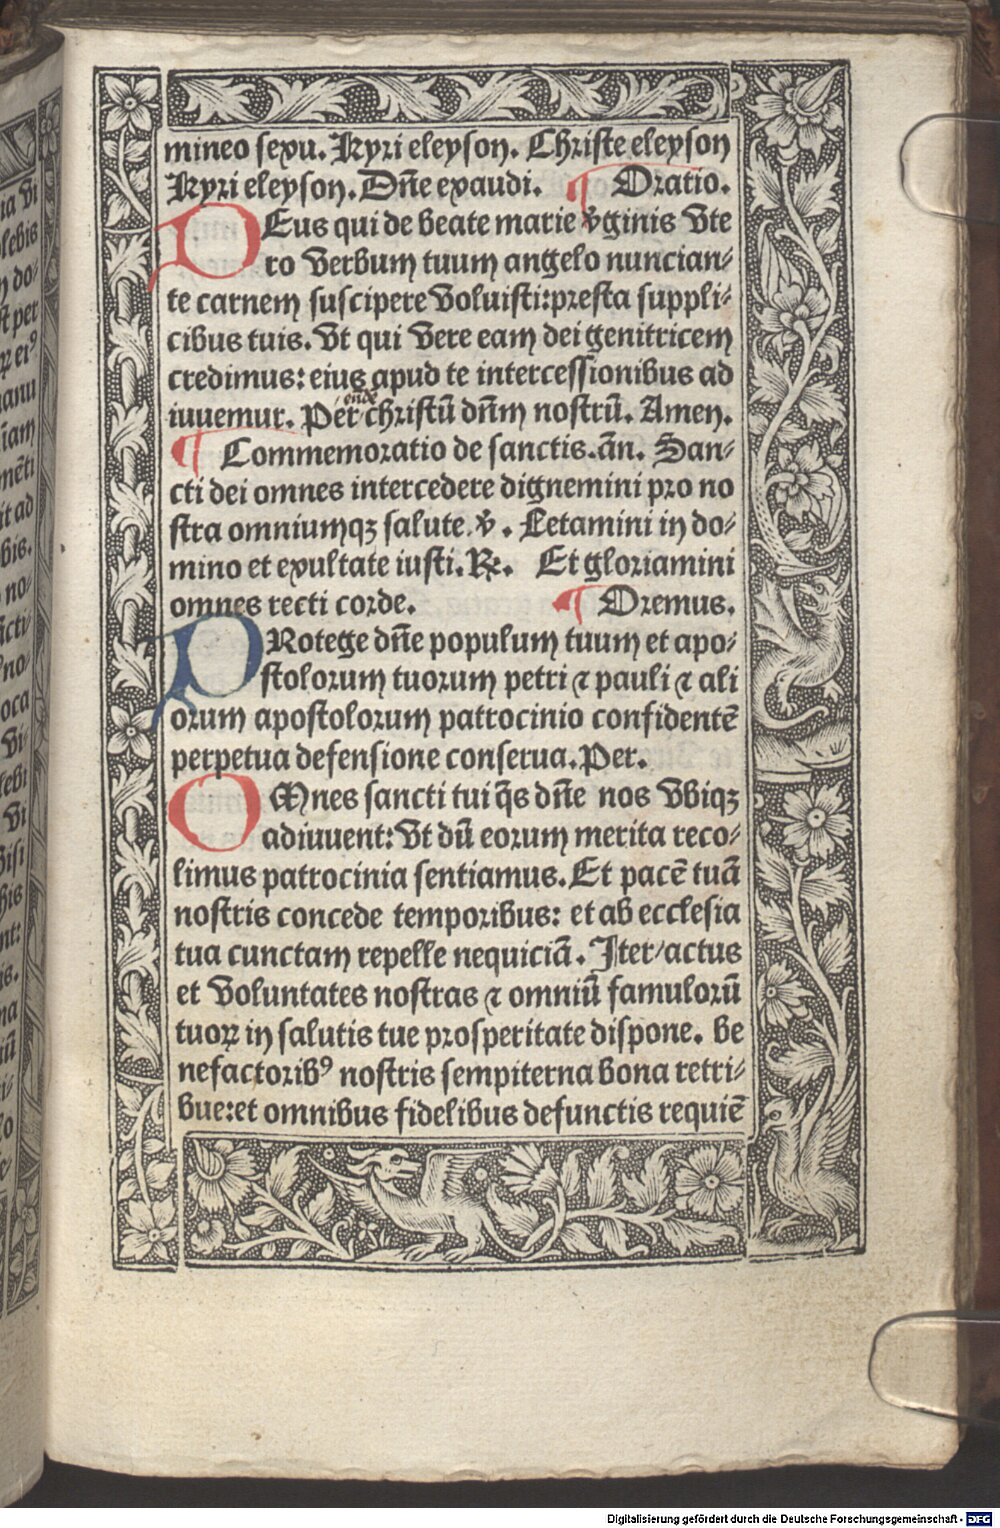 mineo sexu. Kyri eleyson. Christe eleyson
Kyri eleyson. Dn̄e exaudi. ¶ Oratio.
DEus qui de beate marie v̄ginis vte
ro verbum tuum angelo nuncian⸗
te carnem suscipere voluisti: presta suppli⸗
cibus tuis. vt qui vere eam dei genitricem
credimus: eius apud te intercessionibus ad
iuuemur. Per eūdē christū dn̄m nostrū. Amen.
¶ Commemoratio de sanctis. an̄. San⸗
cti dei omnes intercedere dignemini pro no
stra omniumqꝫ salute. v̄. Letamini in do⸗
mino et exultate iusti. R̄. Et gloriamini
omnes recti corde. ¶ Oremus.
PRotege dn̄e populum tuum et apo⸗
stolorum tuorum petri ⁊ pauli ⁊ ali
orum apostolorum patrocinio confidentē
perpetua defensione conserua. Per.
OMnes sancti tui q̄s dn̄e nos vbiqꝫ
adiuuent: vt dū eorum merita reco⸗
limus patrocinia sentiamus. Et pacē tuā
nostris concede temporibus: et ab ecclesia
tua cunctam repelle nequiciā. Iter/actus
et voluntates nostras ⁊ omniū famulorū
tuoꝝ in salutis tue prosperitate dispone. be
nefactoribꝰ nostris sempiterna bona retri⸗
bue: et omnibus fidelibus defunctis requiē
Digitalisierung gefördert durch die Deutsche Forschungsgemeinschaft - DFG